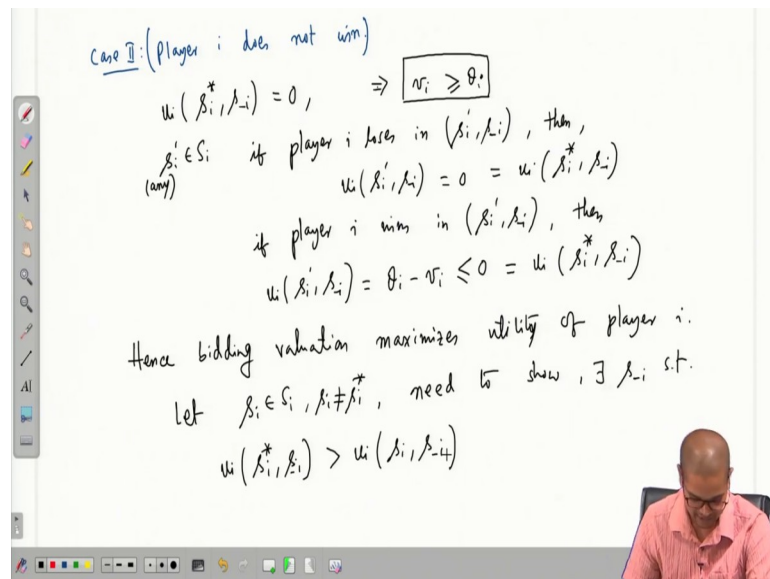 Case II: (Player i does not win)
ui(si*, s-i) = 0, ⇒ vi ≥ θi
si' ∈ Si if player i loses in (si', s-i), then,
(any)
ui(si', s-i) = 0 = ui(si*, s-i)
if player i wins in (si', s-i), then
ui(si', s-i) = θi - vi ≤ 0 = ui(si*, s-i)
Hence bidding valuation maximizes utility of player i.
Let si ∈ Si, si ≠ si*, need to show, ∃ s-i s.t.
ui(si*, s-i) > ui(si, s-i)